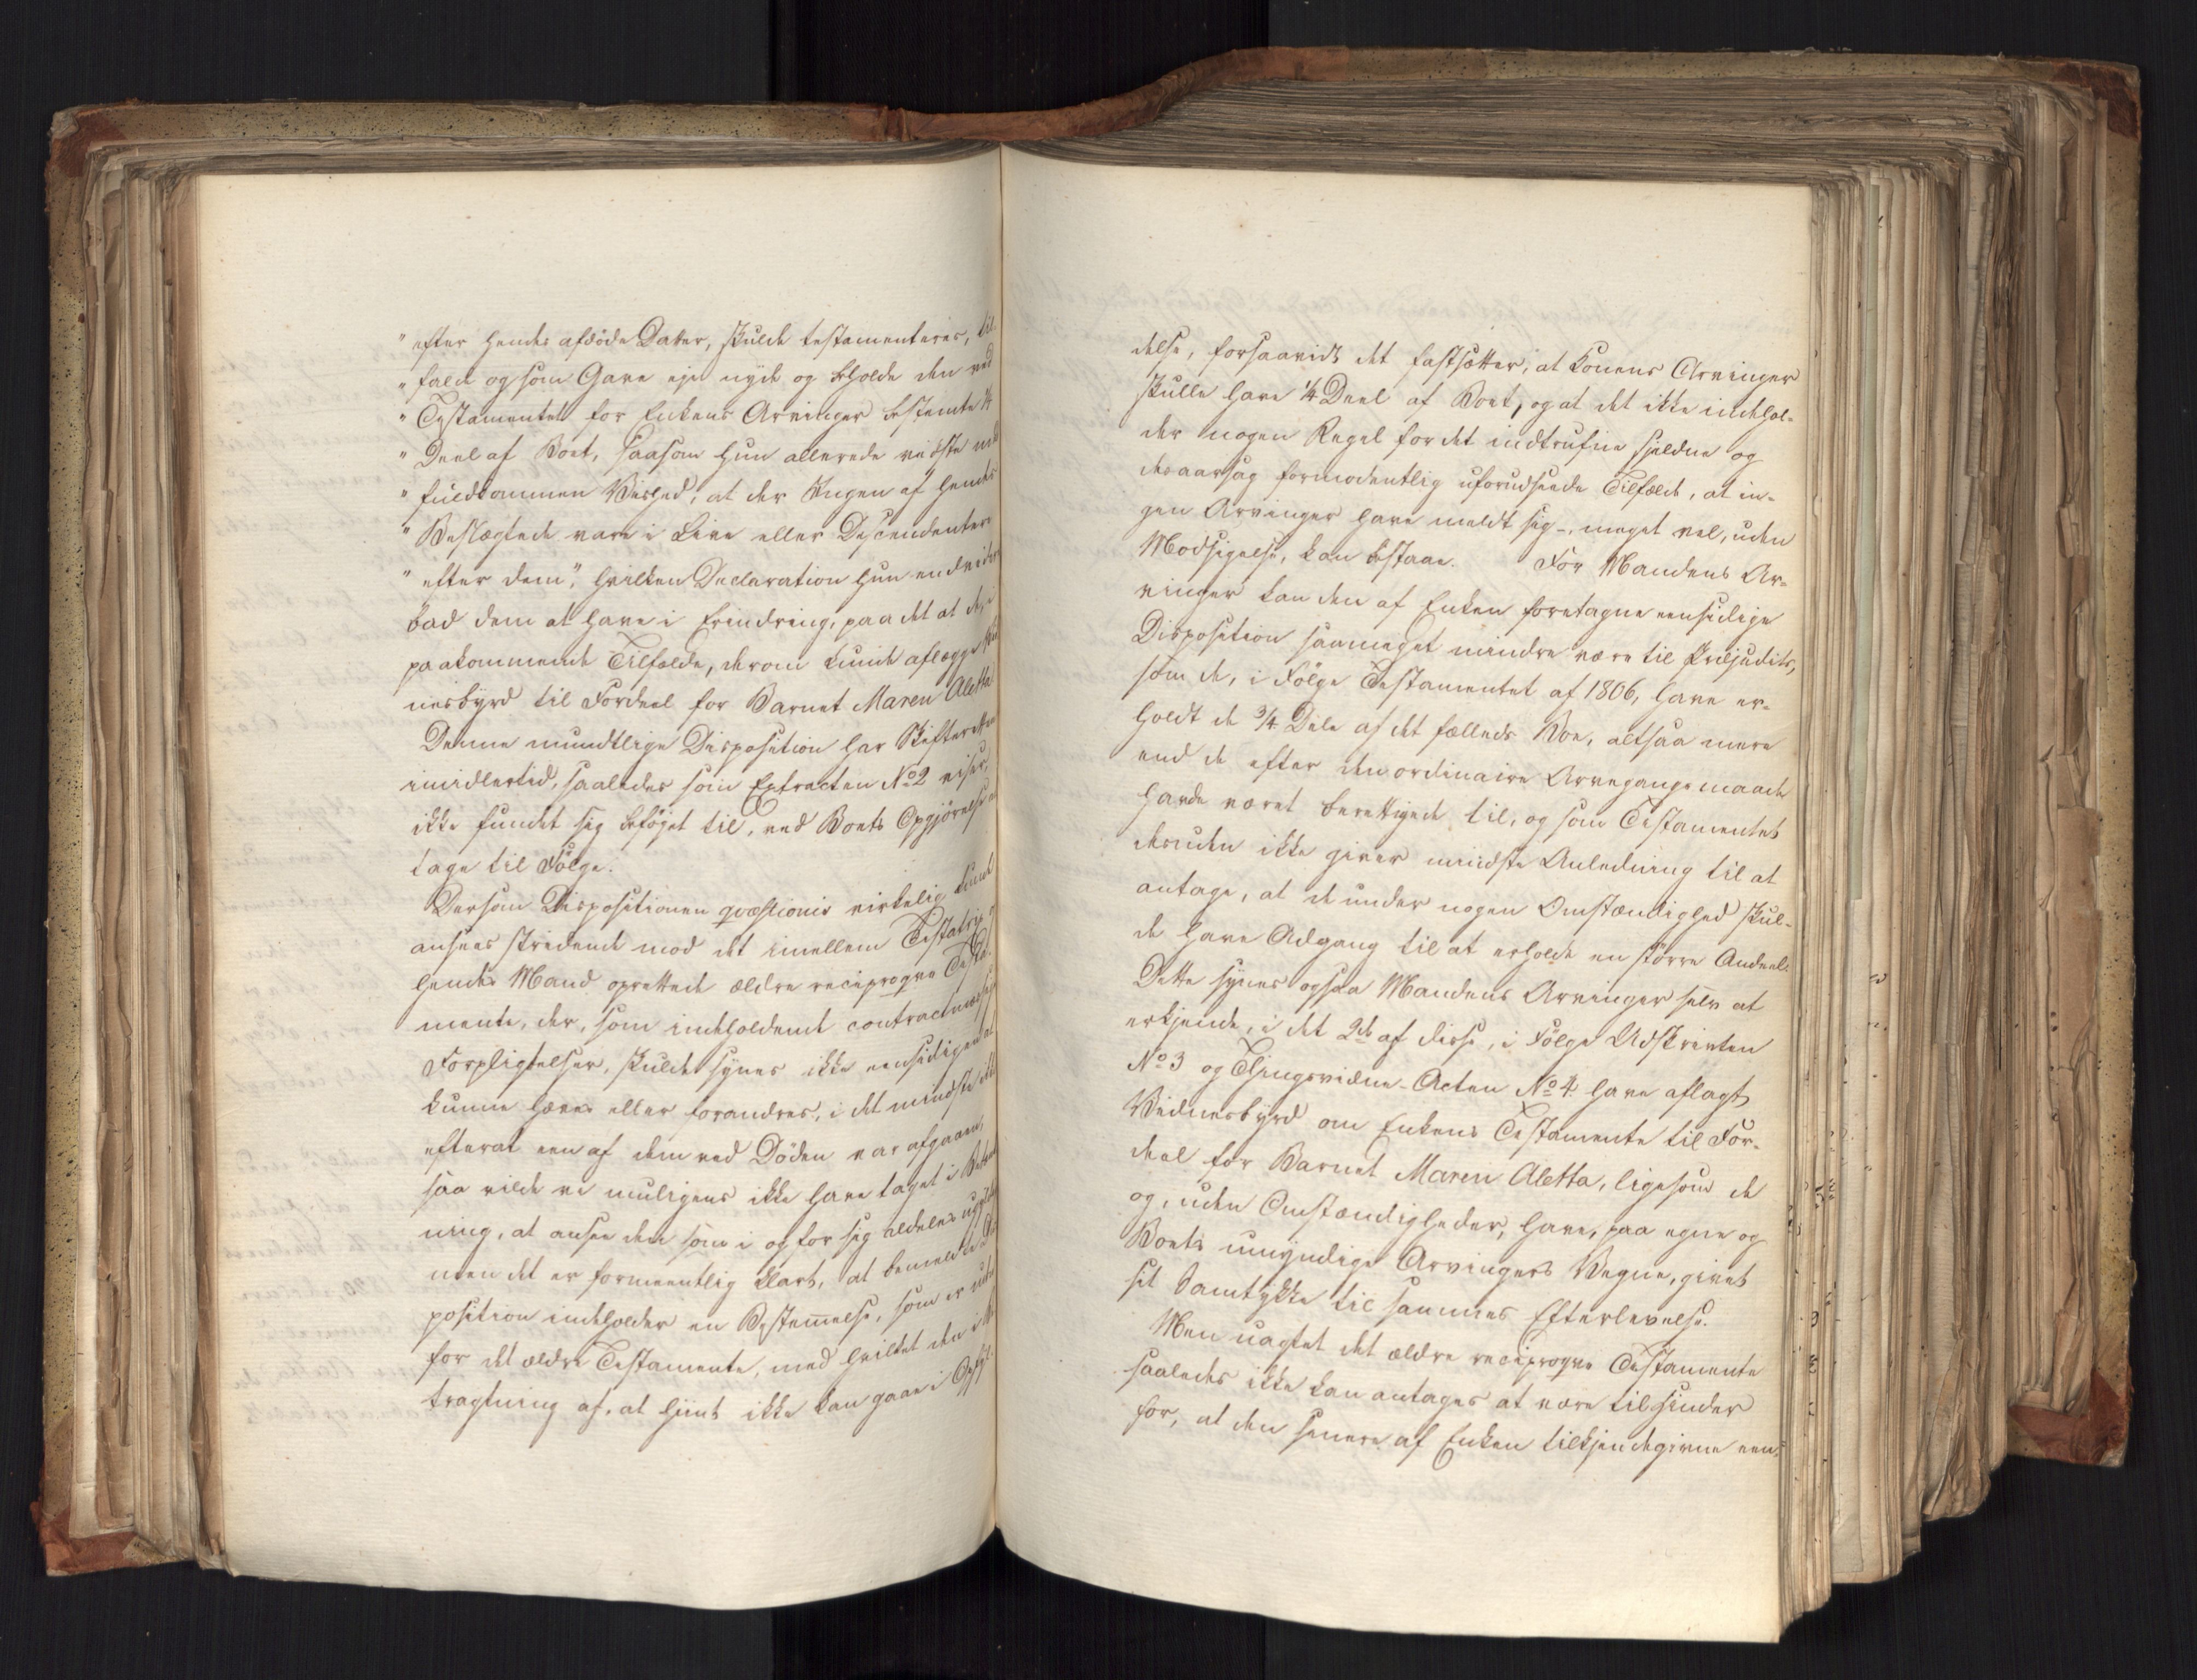 "efter hendes afdöde Datter, skulde testamenteres, til
"falde og som Gave eje nyde og beholde den ved
"Testamentet for Enkens Arvinger bestemte 1/4
"Deel af Boet, saasom hun allerede vidste med
"fuldkommen Vished, at der Ingen af hendes
"Beslægtede vare i Live eller Descendenter
"efter dem", hvilken Declaration hun endvidere
bad dem at have i Erindring, paa det at de, i
paakommende Tilfælde, derom kunde aflægge Vid
nesbyrd til Fordeel for Barnet Maren Aletta
Denne mundtlige Disposition har Skifteretten
imidlertid, saaledes som Extracten No 2 viser,
ikke fundet sig beföyet til, ved Boets Opgjörelse at
tage til Fölge.
Dersom Dispositionen qvæstionis virkelig kunde
ansees stridende mod det imellem Testatrix og
hendes Mand oprettede ældre reciproqve Testa-
mente, der, som indeholdende contractmæssige
Forpligtelser, skulde synes ikke eensidigen at
kunne hæves eller forandres, i det mindste ikke
efterat een af dem ved Döden var afgaaen,
saa vilde vi muligens ikke have taget i Betænk
ning, at ansee den som i og for sig aldeles ugyldig
men det er formeentlig klart, at bemeldte Dis
position indeholder en Bestemmelse, som er uden
for det ældre Testamente, med hvilket den i Be
tragtning af, at hiint ikke kan gaae i Opfyl-
delse, forsaavidt det fastsætter, at Konens Arvinger
skulle have 1/4 Deel af Boet, og at det ikke indehol-
der nogen Regel for det indtrufne sjeldne og
desaarsag formodentlig uforudseede Tilfælde, at in-
gen Arvinger have meldt sig -, meget vel, uden
Modsigelse, kan bestaae. For Mandens Ar-
vinger kan den af Enken foretagne eensidige
Disposition saameget mindre være til Præjudits,
som de, i Fölge Testamentet af 1806, have er-
holdt de 3/4 Dele af det fælleds Boe, altsaa mere
end de efter den ordinaire Arvegangsmaade
havde været berettigede til, og som Testamentet
desuden ikke giver mindste Anledning til at
antage, at de under nogen Omstændighed skul-
de have Adgang til at erholde en större Andeel.
Dette synes ogsaa Mandens Arvinger selv at
erkjende, i det 2de af disse, i Fölge Udskrivten
No 3 og Thingsvidne-Acten No 4 have aflagt
Vidnesbyrd om Enkens Testamente til For-
deel for Barnet Maren Aletta, ligesom de
og, uden Omstændigheder, have, paa egne og
Boets umyndige Arvingers Vegne, givet
sit Samtykke til sammes Efterlevelse.
Men uagtet det ældre reciproqve Testamente
saaledes ikke kan antages at være til Hinder
for, at den senere af Enken tilkjendegivne een-